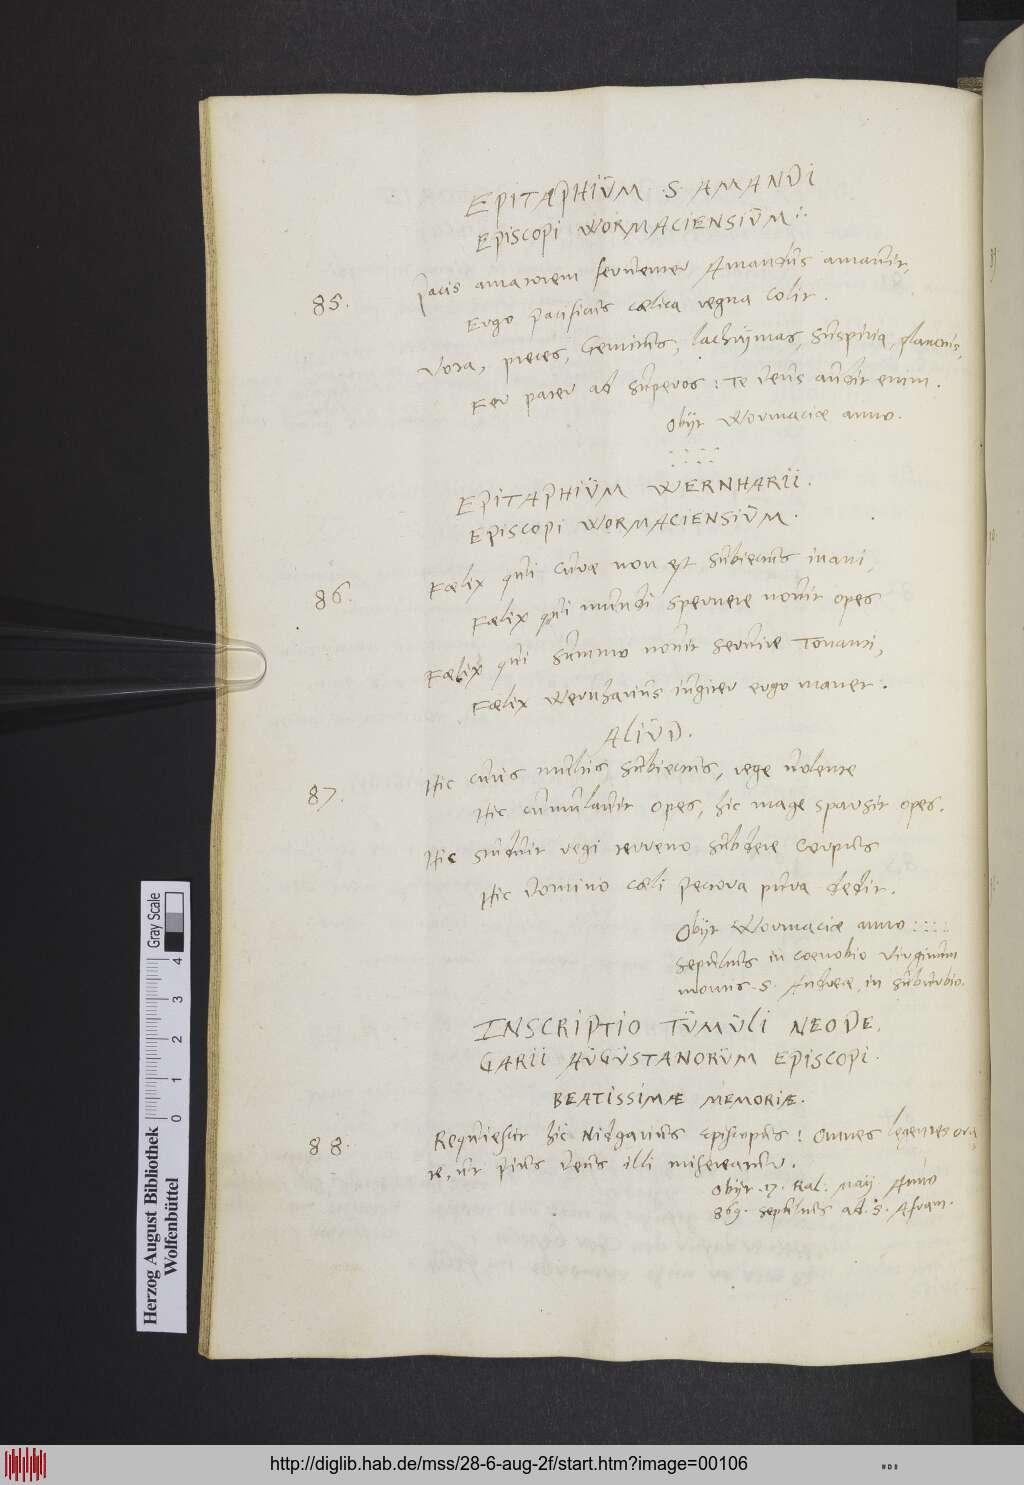 EPITAPHIŬM · S · AMANDI
EPISCOPI WORMACIENSIŬM :·
85. Pacis amatorem ferventer Amandŭs amavit,
Ergo pacificŭs cælica regna colit.
Vota, preces, Gemitŭs, lachrÿmas, Sŭspiria, planctŭs,
Fer pater ad Sŭperos : Te deŭs aŭdit enim.
Obijt Wormaciæ anno.
: : : :
EPITAPHIŬM WERNHARII.
EPISCOPI WORMACIENSIŬM.
86. Fœlix qŭi cŭræ non est Sŭbiectŭs inani,
Fœlix qŭi mŭndi spernere novit opes
Fœlix qŭi Sŭmmo novit servire Tonanti,
Fœlix Wernhariŭs iŭgiter ergo manet.
ALIŬD.
87. Hic cŭris mŭltis Sŭbiectŭs, rege volente
Hic cŭmŭlavit opes, hic mage sparsit opes.
Hic stŭdŭit regi terreno sŭbdere Corpŭs
Hic domino cæli pectora pŭra dedit.
Obijt Wormaciæ anno : : : :
Sepŭltŭs in coenobio Virginŭm
montis · S · Andreæ, in Sŭbŭrbio.
INSCRIPTIO TŬMŬLI NEODE,
GARII AŬGŬSTANORŬM EPISCOPI.
BEATISSIMÆ MEMORIÆ.
88. Reqŭiescit hic Nidgariŭs Episcopŭs ! Omnes legentes ora,
te, ŭt piŭs deŭs illi misereatŭr.
Obijt · 17 · Kal : Maij Anno
869. Sepŭltŭs ad · S · Afram.
Herzog August Bibliothek
Wolfenbüttel
0 1 2 3 4
Gray Scale
http://diglib.hab.de/mss/28-6-aug-2f/start.htm?image=00106